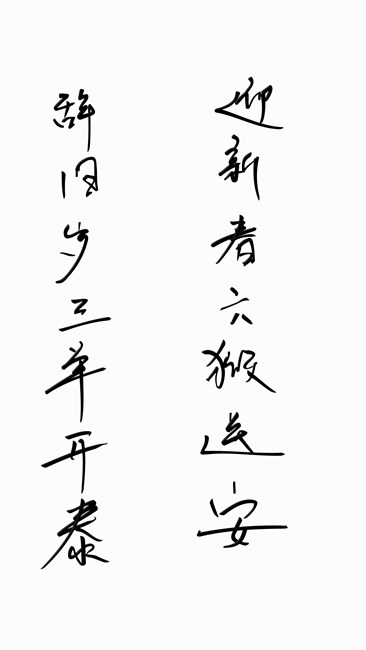 迎新春六猴送安
辞旧岁三羊开泰